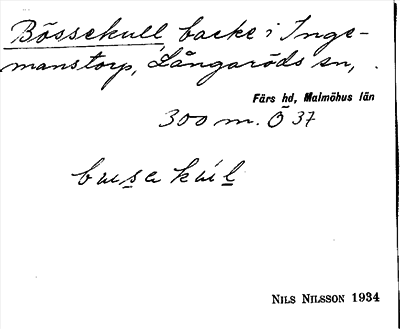 Bössekull, backe i Inge-
manstorp, Långaröds sn,
Färs hd, Malmöhus län
300 m. Ö 37
NILS NILSSON 1934